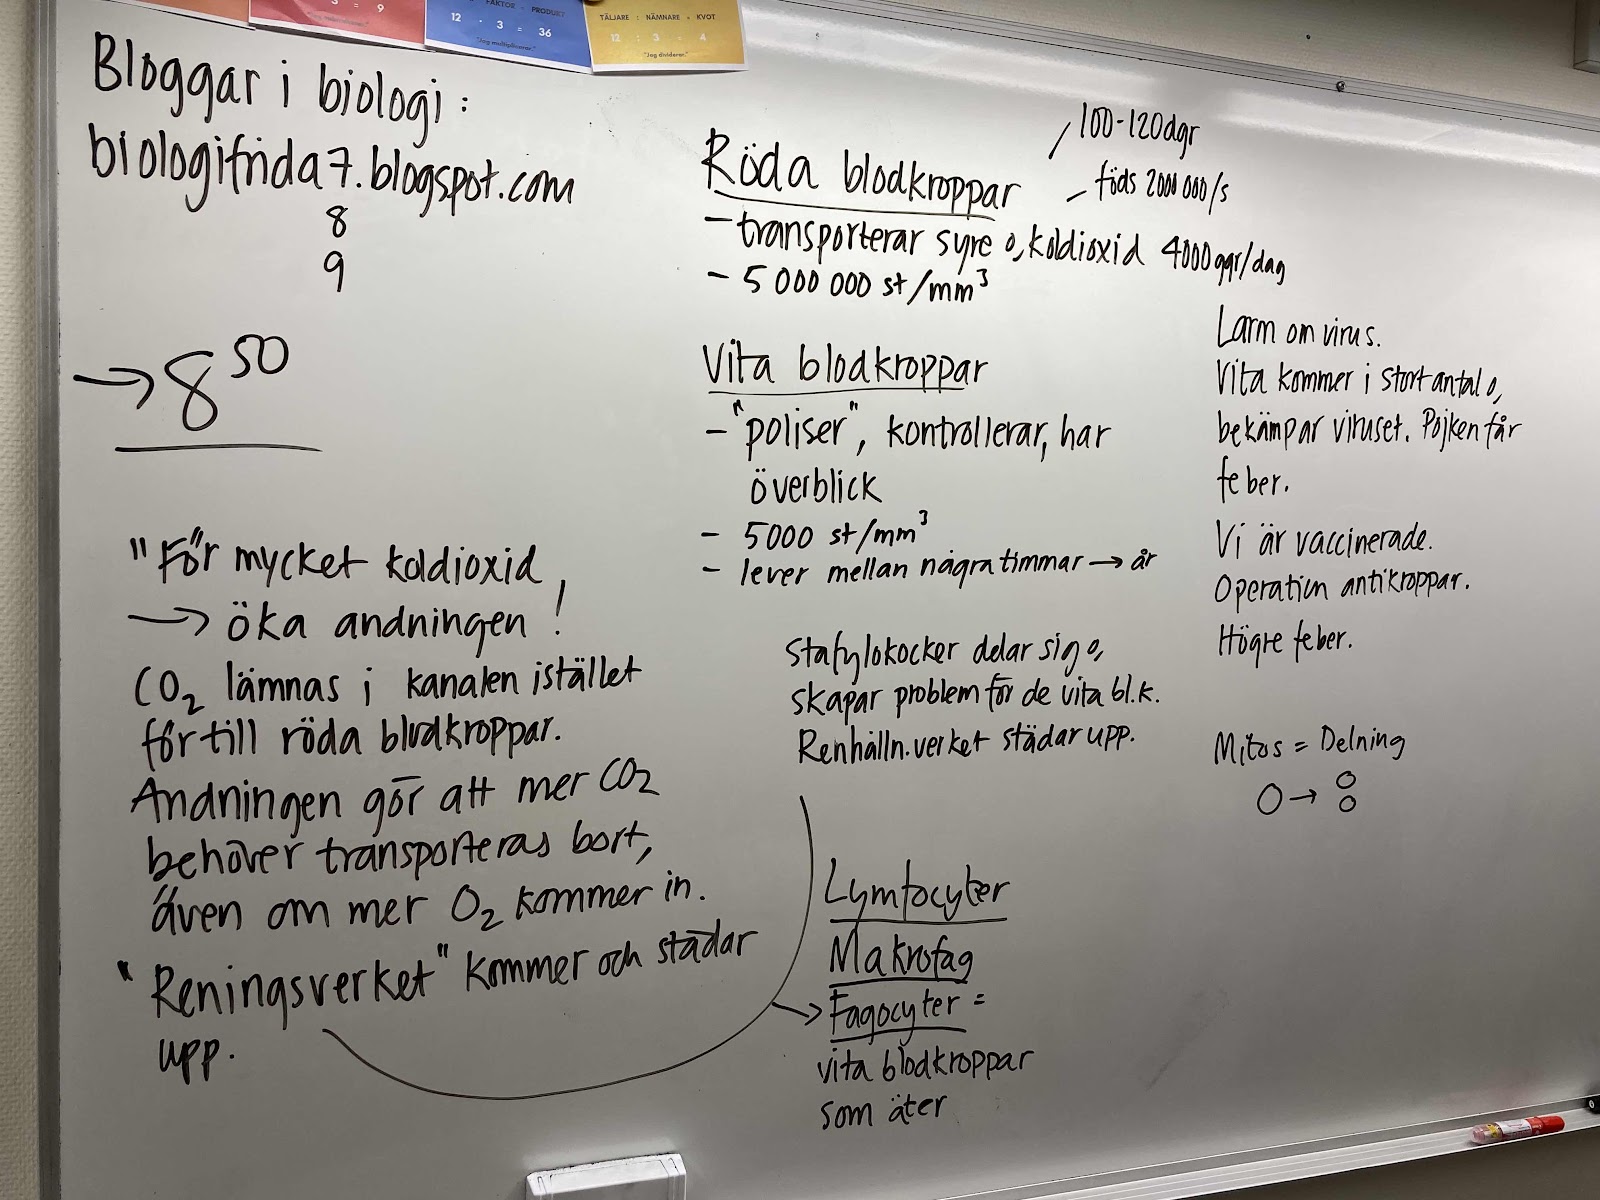 3 = 9
FAKTOR · PRODUKT
12 · 3 = 36
"Jag multiplicerar."
TÄLJARE : NÄMNARE = KVOT
12 : 3 = 4
"Jag dividerar."
Bloggar i biologi:
biologifrida7.blogspot.com
8
9
→ 8 50
"För mycket koldioxid,
→ öka andningen!
CO2 lämnas i kanalen istället
för till röda blodkroppar.
Andningen gör att mer CO2
behöver transporteras bort,
även om mer O2 kommer in.
"Reningsverket" kommer och städar
upp.
Röda blodkroppar
100-120dgr
föds 2000 000/s
- transporterar syre o, koldioxid 4000ggr/dag
- 5 000 000 st/mm³
Vita blodkroppar
- "poliser", kontrollerar, har
överblick
- 5000 st/mm³
- lever mellan några timmar → år
Stafylokocker delar sig o,
skapar problem för de vita bl.k.
Renhålln.verket städar upp.
Lymfocyter
Makrofag
→ Fagocyter =
vita blodkroppar
som äter
Larm om virus.
Vita kommer i stort antal o,
bekämpar viruset. Pojken får
feber.
Vi är vaccinerade.
Operation antikroppar.
Högre feber.
Mitos = Delning